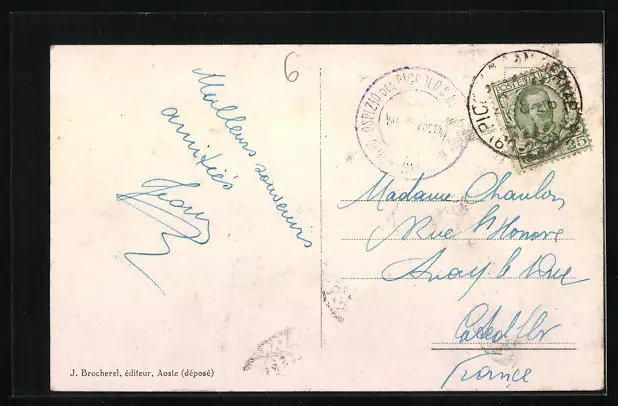 6
Meilleurs souvenirs
amitiés
Jean
OSPIZIO DEL PICCOLO S.
POSTE ITALIANE
25
Madame Chaulon
Rue St Honoré
Arnay le Duc
Côte d'Or
France
J. Brocherel, éditeur, Aoste (déposé)